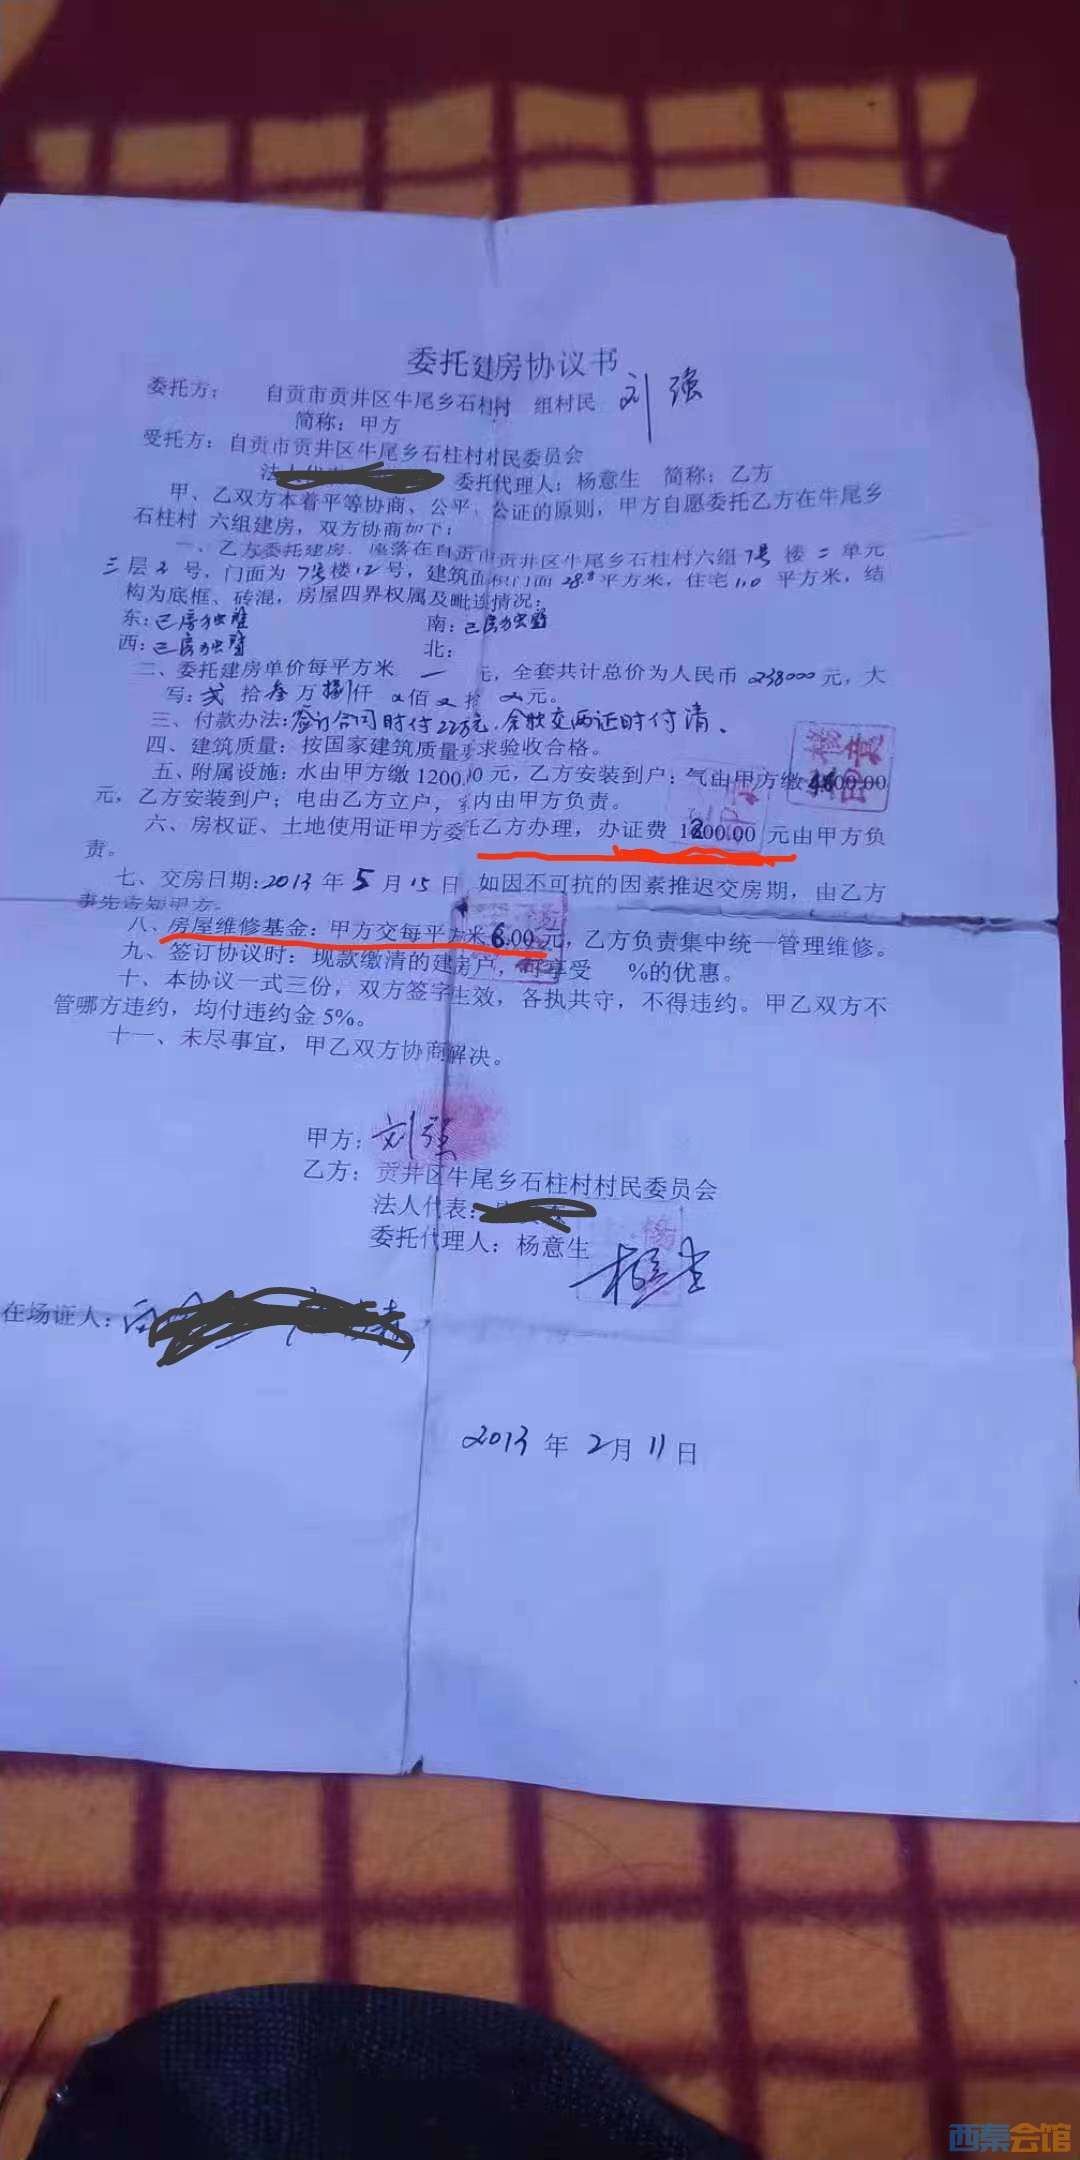 委托建房协议书
委托方： 自贡市贡井区牛尾乡石柱村 组村民 刘强
简称：甲方
受托方：自贡市贡井区牛尾乡石柱村村民委员会
法人代表 委托代理人：杨意生 简称：乙方
甲、乙双方本着平等协商、公平、公证的原则，甲方自愿委托乙方在牛尾乡
石柱村 六组建房，双方协商如下：
一、乙方委托建房，座落在自贡市贡井区牛尾乡石柱村六组7号 楼 二 单元
三层2 号，门面为 7号楼12号，建筑面积门面 28.8平方米，住宅110 平方米，结
构为底框、砖混，房屋四界权属及毗连情况：
东：己房独壁 南：己房独壁
西：己房独壁 北：
二、委托建房单价每平方米 一 元，全套共计总价为人民币 238000元，大
写：贰 拾叁万捌仟 佰 拾 元。
三、付款办法：签订合同时付22万元，余款交两证时付清、
四、建筑质量：按国家建筑质量要求验收合格。
五、附属设施：水由甲方缴1200.00元，乙方安装到户；气由甲方缴 00.00
元，乙方安装到户；电由乙方立户，室内由甲方负责。
六、房权证、土地使用证甲方委托乙方办理，办证费 1800.00 元由甲方负
责。
七、交房日期：2013年5月15日，如因不可抗的因素推迟交房期，由乙方
事先告知甲方。
八、房屋维修基金：甲方交每平方米6.00元，乙方负责集中统一管理维修。
九、签订协议时：现款缴清的建房户，可享受 %的优惠。
十、本协议一式三份，双方签字生效，各执共守，不得违约。甲乙双方不
管哪方违约，均付违约金5%。
十一、未尽事宜，甲乙双方协商解决。
甲方：刘强
乙方：贡井区牛尾乡石柱村村民委员会
法人代表：
委托代理人：杨意生
在场证人：
2013年2月11日
西秦会馆